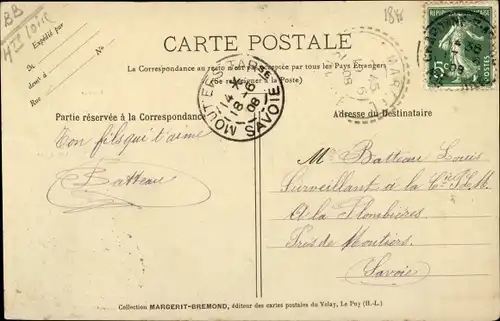 BB
Hte Loire
Expédié par
M
dem t à
N°
Rue
CARTE POSTALE
La Correspondance au recto n'est pas acceptée par tous les Pays Etrangers
(Se renseigner à la Poste)
MOUTIERS-TARse
14 * 16
8 08
SAVOIE
Partie réservée à la Correspondance
Adresse du Destinataire
Ton fils qui t'aime
Batteau
Mr Batteau Louis
Surveillant à la Cie P.L.M.
à la Plombières
Près de Moutiers
Savoie
Collection MARGERIT-BREMOND, éditeur des cartes postales du Velay, Le Puy (H.-L.)